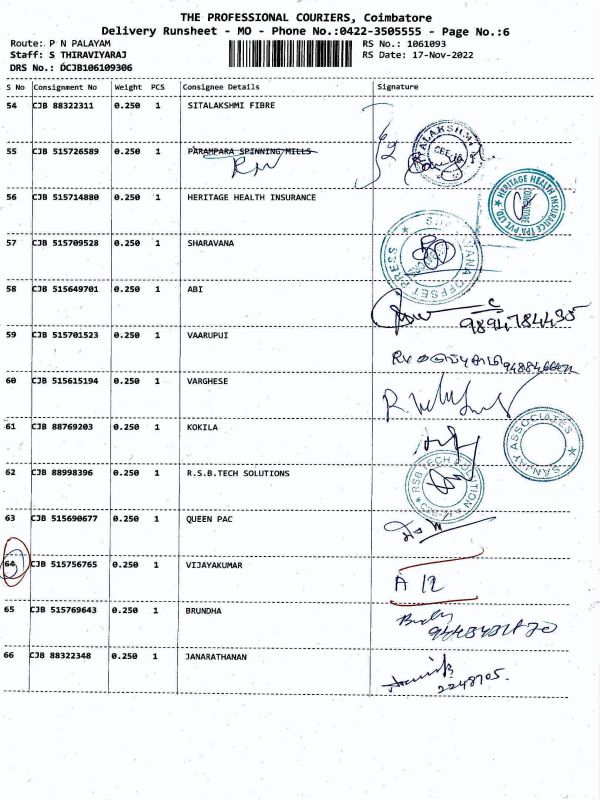 THE PROFESSIONAL COURIERS, Coimbatore
Delivery Runsheet - MO - Phone No.:0422-3505555 - Page No.:6
Route: P N PALAYAM
Staff: S THIRAVIYARAJ
DRS No.: DCJB106109306
RS No.: 1061093
RS Date: 17-Nov-2022
S No Consignment No Weight PCS Consignee Details Signature
54 CJB 88322311 0.250 1 SITALAKSHMI FIBRE
55 CJB 515726589 0.250 1 PARAMPARA SPINNING MILLS
56 CJB 515714880 0.250 1 HERITAGE HEALTH INSURANCE
HERITAGE HEALTH INSURANCE TPA PVT LTD
COIMBATORE
57 CJB 515709528 0.250 1 SHARAVANA
OFFSET PRESS
58 CJB 515649701 0.250 1 ABI
9894784435
59 CJB 515701523 0.250 1 VAARUPUI
60 CJB 515615194 0.250 1 VARGHESE
61 CJB 88769203 0.250 1 KOKILA
SANJAY ASSOCIATES
62 CJB 88998396 0.250 1 R.S.B.TECH SOLUTIONS
RSB TECH SOLUTION
63 CJB 515690677 0.250 1 QUEEN PAC
64 CJB 515756765 0.250 1 VIJAYAKUMAR
A 12
65 CJB 515769643 0.250 1 BRUNDHA
66 CJB 88322348 0.250 1 JANARATHANAN
2248705.